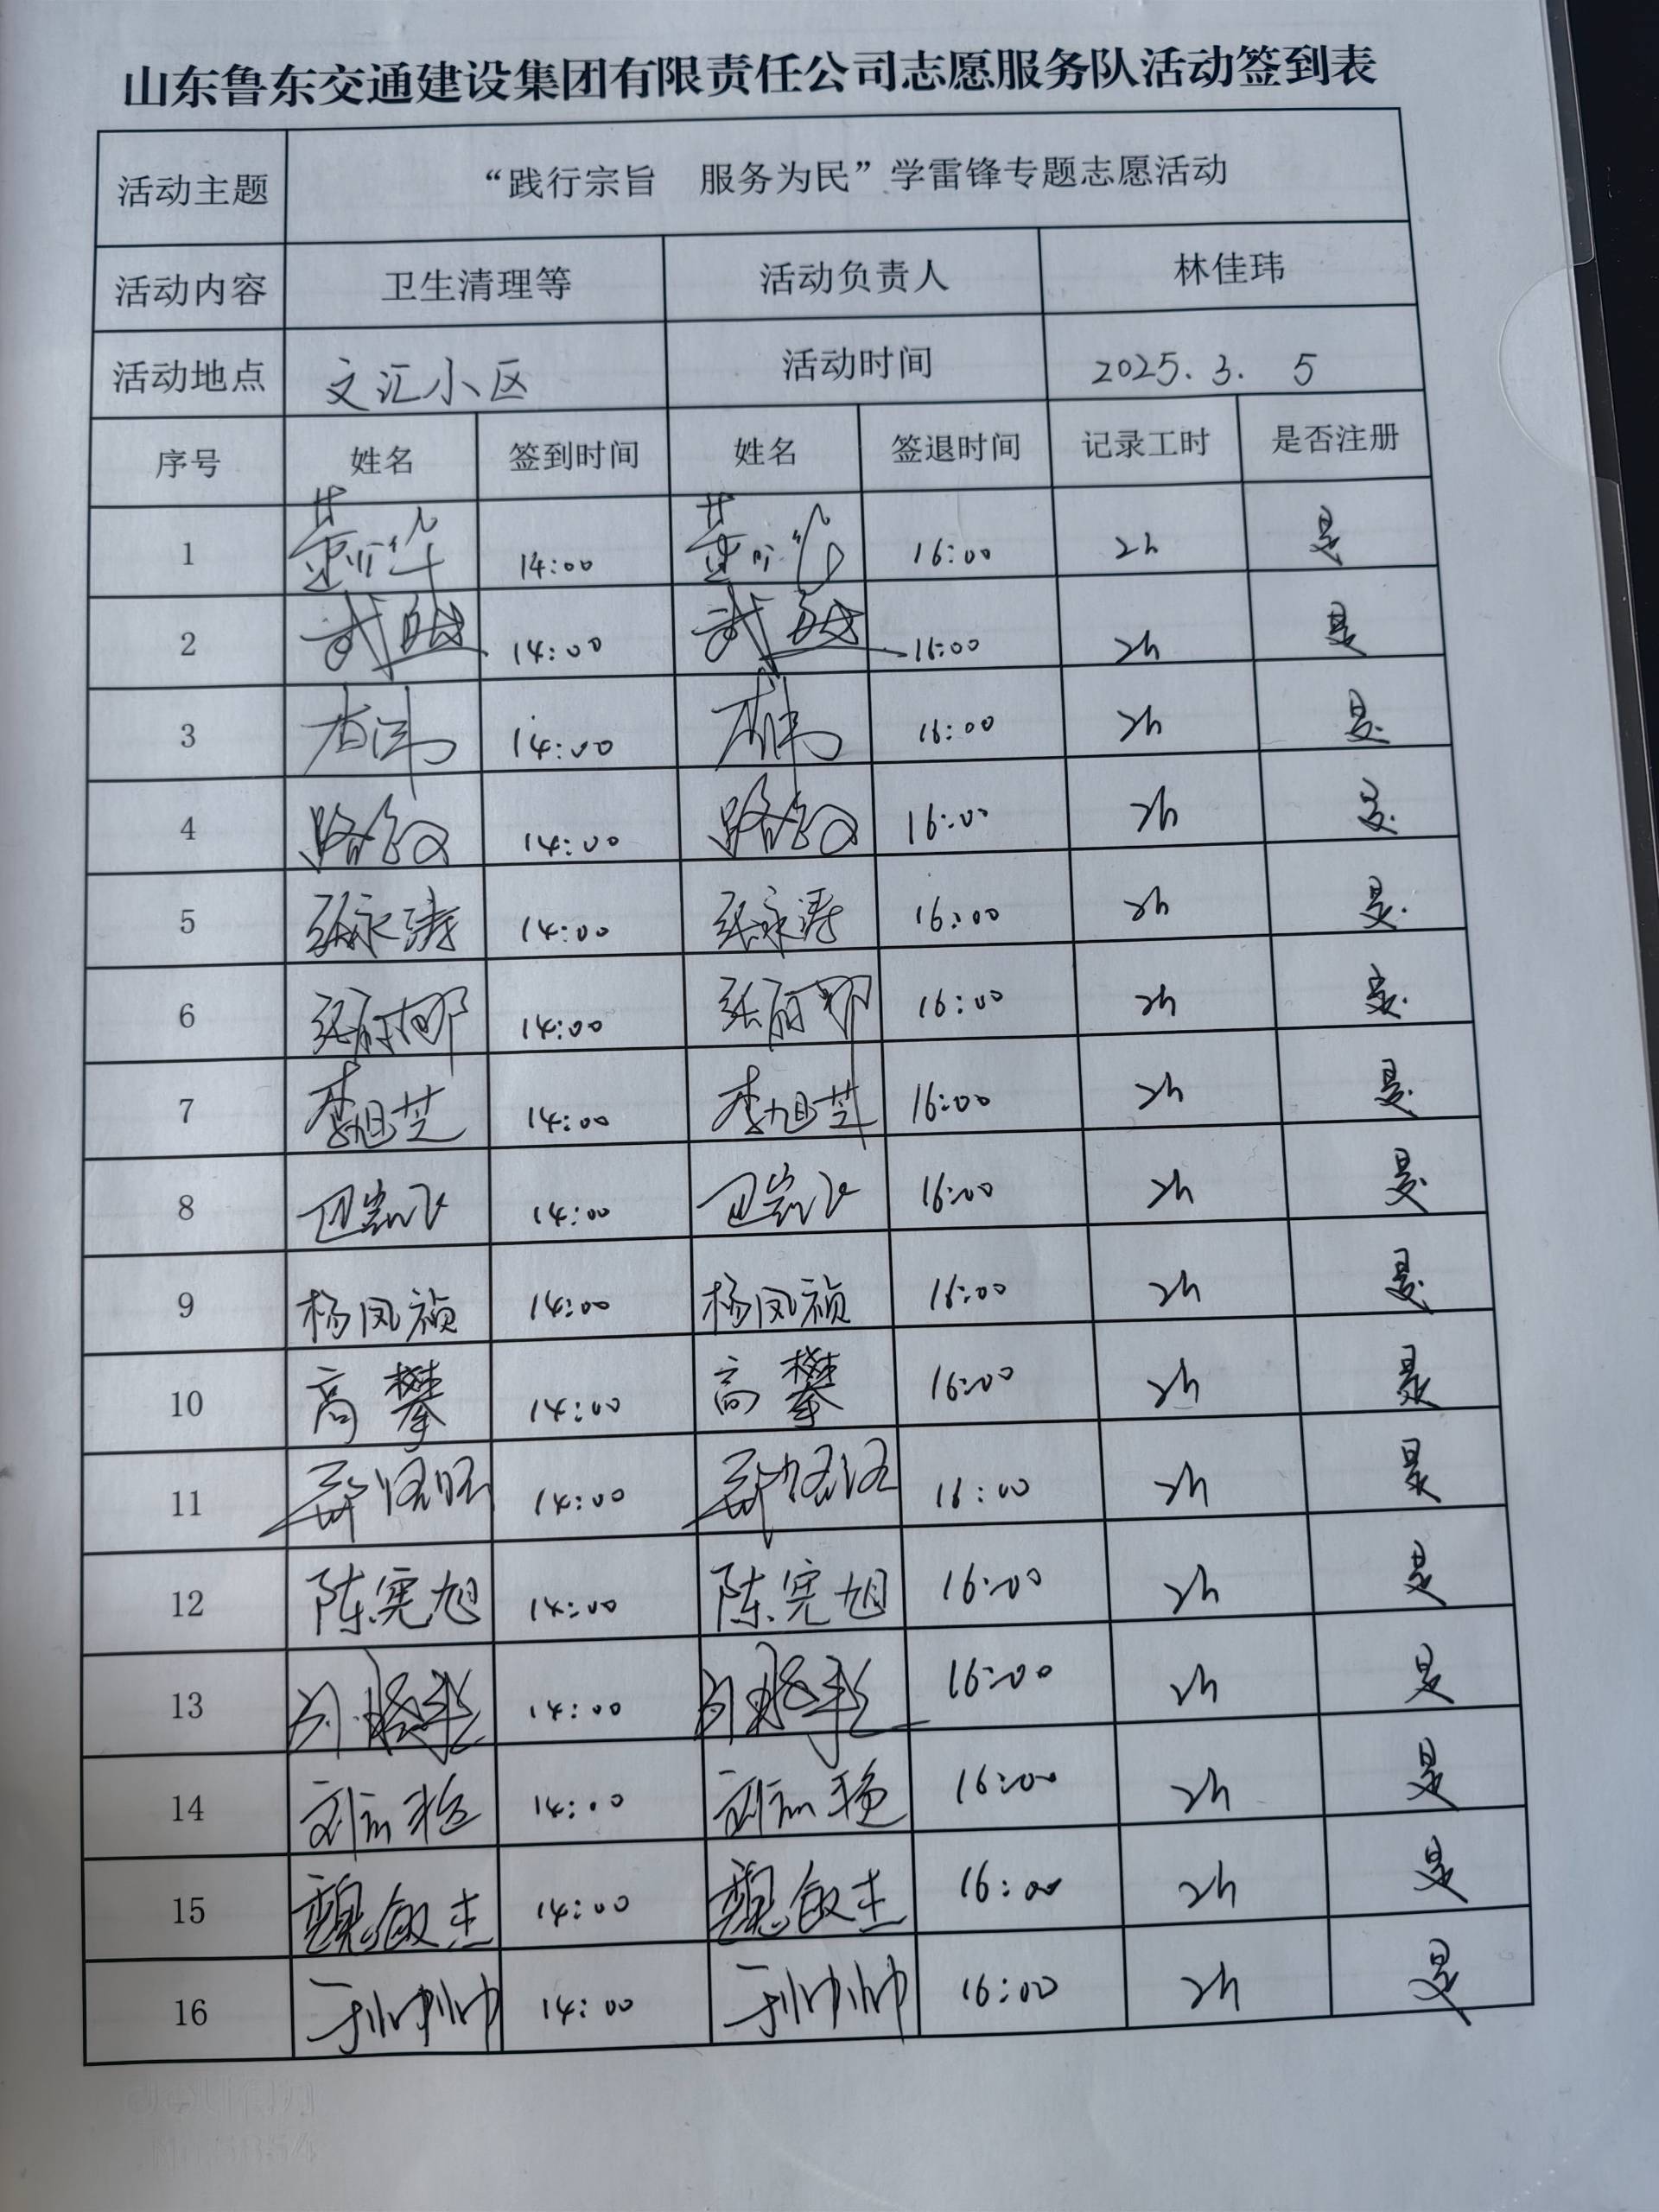 山东鲁东交通建设集团有限责任公司志愿服务队活动签到表
活动主题 “践行宗旨 服务为民”学雷锋专题志愿活动
活动内容 卫生清理等 活动负责人 林佳玮
活动地点 文汇小区 活动时间 2025.3.5
序号 姓名 签到时间 姓名 签退时间 记录工时 是否注册
1 14:00 16:00 2h 是
2 14:00 16:00 2h 是
3 14:00 16:00 2h 是
4 14:00 16:00 2h 是
5 张永涛 14:00 张永涛 16:00 2h 是
6 14:00 16:00 2h 是
7 李旭芝 14:00 李旭芝 16:00 2h 是
8 14:00 16:00 2h 是
9 杨凤祯 14:00 杨凤祯 16:00 2h 是
10 高攀 14:00 高攀 16:00 2h 是
11 14:00 16:00 2h 是
12 陈宪旭 14:00 陈宪旭 16:00 2h 是
13 14:00 16:00 2h 是
14 14:00 16:00 2h 是
15 魏敏杰 14:00 魏敏杰 16:00 2h 是
16 于帅帅 14:00 于帅帅 16:00 2h 是